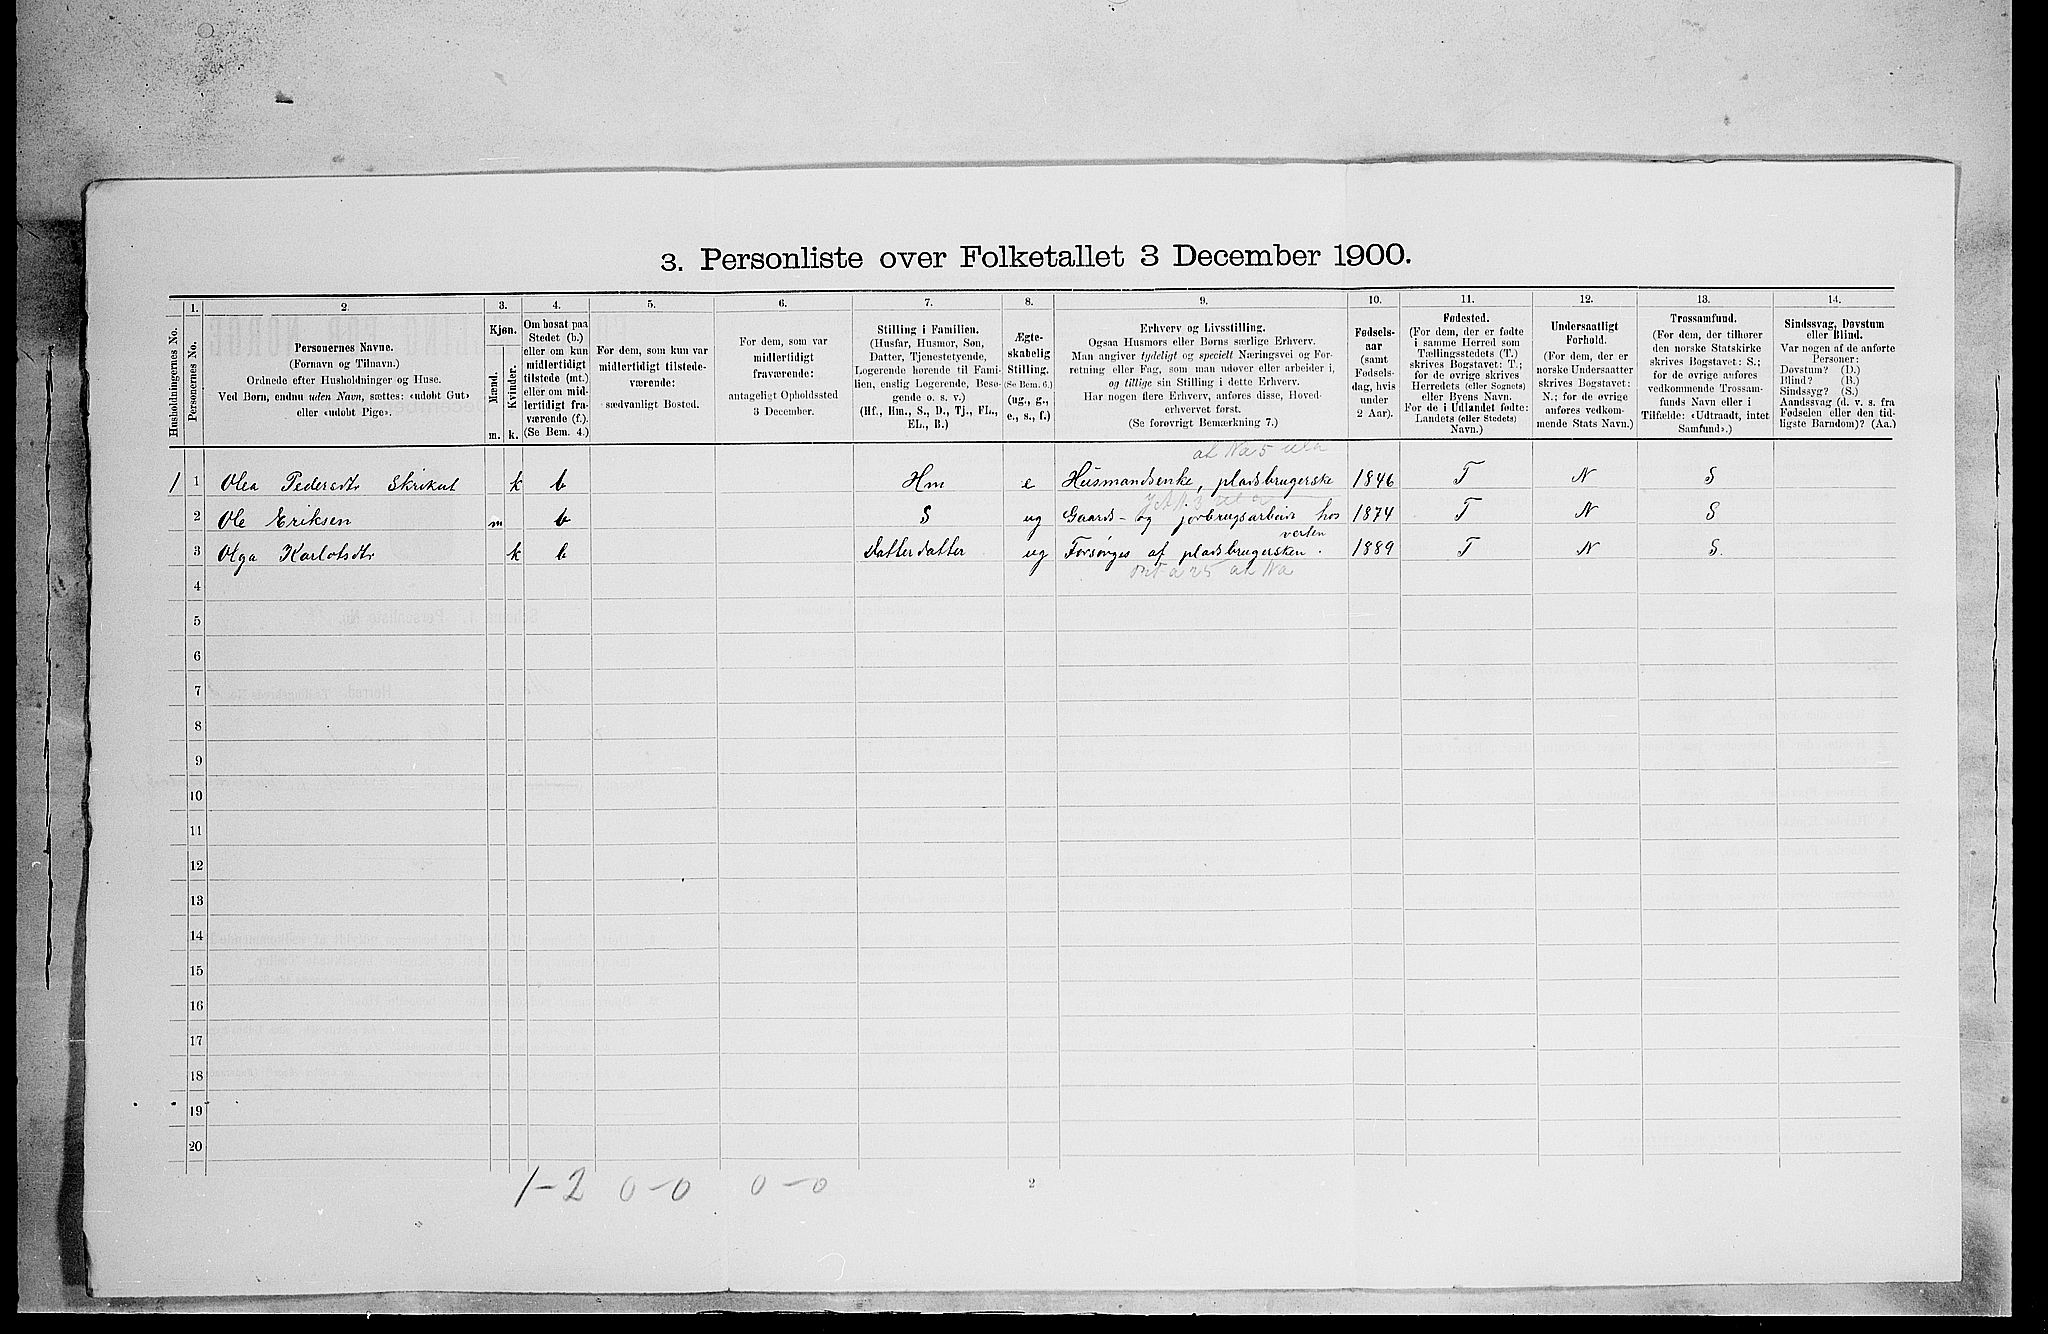 3. Personliste over Folketallet 3 December 1900.
1. 2. 3. 4. 5. 6. 7. 8. 9. 10. 11. 12. 13. 14.
Husholdningernes No.
Personernes No.
Personernes Navne.
(Fornavn og Tilnavn.)
Ordnede efter Husholdninger og Huse.
Ved Børn, endnu uden Navn, sættes: «udøbt Gut»
eller «udøbt Pige».
Kjøn.
Mænd.
Kvinder.
m. k.
Om bosat paa
Stedet (b.)
eller om kun
midlertidigt
tilstede (mt.)
eller om mid-
lertidigt fra-
værende (f.).
(Se Bem. 4.)
For dem, som kun var
midlertidigt tilstede-
værende:
sædvanligt Bosted.
For dem, som var
midlertidigt
fraværende:
antageligt Opholdssted
3 December.
Stilling i Familien.
(Husfar, Husmor, Søn,
Datter, Tjenestetyende,
Logerende hørende til Fami-
lien, enslig Logerende, Besø-
gende o. s. v.)
(Hf., Hm., S., D., Tj., FL.,
EL., B.)
Ægte-
skabelig
Stilling.
(Se Bem. 6.)
(ug., g.,
e., s., f.)
Erhverv og Livsstilling.
Ogsaa Husmors eller Børns særlige Erhverv.
Man angiver tydeligt og specielt Næringsvei og For-
retning eller Fag, som man udøver eller arbeider i,
og tillige sin Stilling i dette Erhverv.
Har nogen flere Erhverv, anføres disse, Hoved-
erhvervet først.
(Se forøvrigt Bemærkning 7.)
Fødsels-
aar
(samt
Fødsels-
dag, hvis
under
2 Aar).
Fødested.
(For dem, der er fødte
i samme Herred som
Tællingsstedets (T.)
skrives Bogstavet: T.;
for de øvrige skrives
Herredets (eller Sognets)
eller Byens Navn.
For de i Udlandet fødte:
Landets (eller Stedets)
Navn.)
Undersaatligt
Forhold.
(For dem, der er
norske Undersaatter
skrives Bogstavet:
N.; for de øvrige
anføres vedkom-
mende Stats Navn.)
Trossamfund.
(For dem, der tilhører
den norske Statskirke
skrives Bogstavet: S.;
for de øvrige anføres
vedkommende Trossam-
funds Navn eller i
Tilfælde: «Udtraadt, intet
Samfund».)
Sindssvag, Døvstum
eller Blind.
Var nogen af de anførte
Personer:
Døvstum? (D.)
Blind? (B.)
Sindssyg? (S.)
Aandssvag (d. v. s. fra
Fødselen eller den tid-
ligste Barndom)? (Aa.)
1 1 Olea Pedersdtr Skrikut k b Hm e Husmandsenke, pladsbrugerske 1846 T N S
2 Ole Eriksen m b S ug Gaards- og jordbrugsarbeide hos 1874 T N S
verten
3 Olga Karlotsdtr k b Datterdatter ug Forsørges af pladsbrugersken. 1889 T N S.
4
5
6
7
8
9
10
11
12
13
14
15
16
17
18
19
20
1-2 0-0 0-0 2